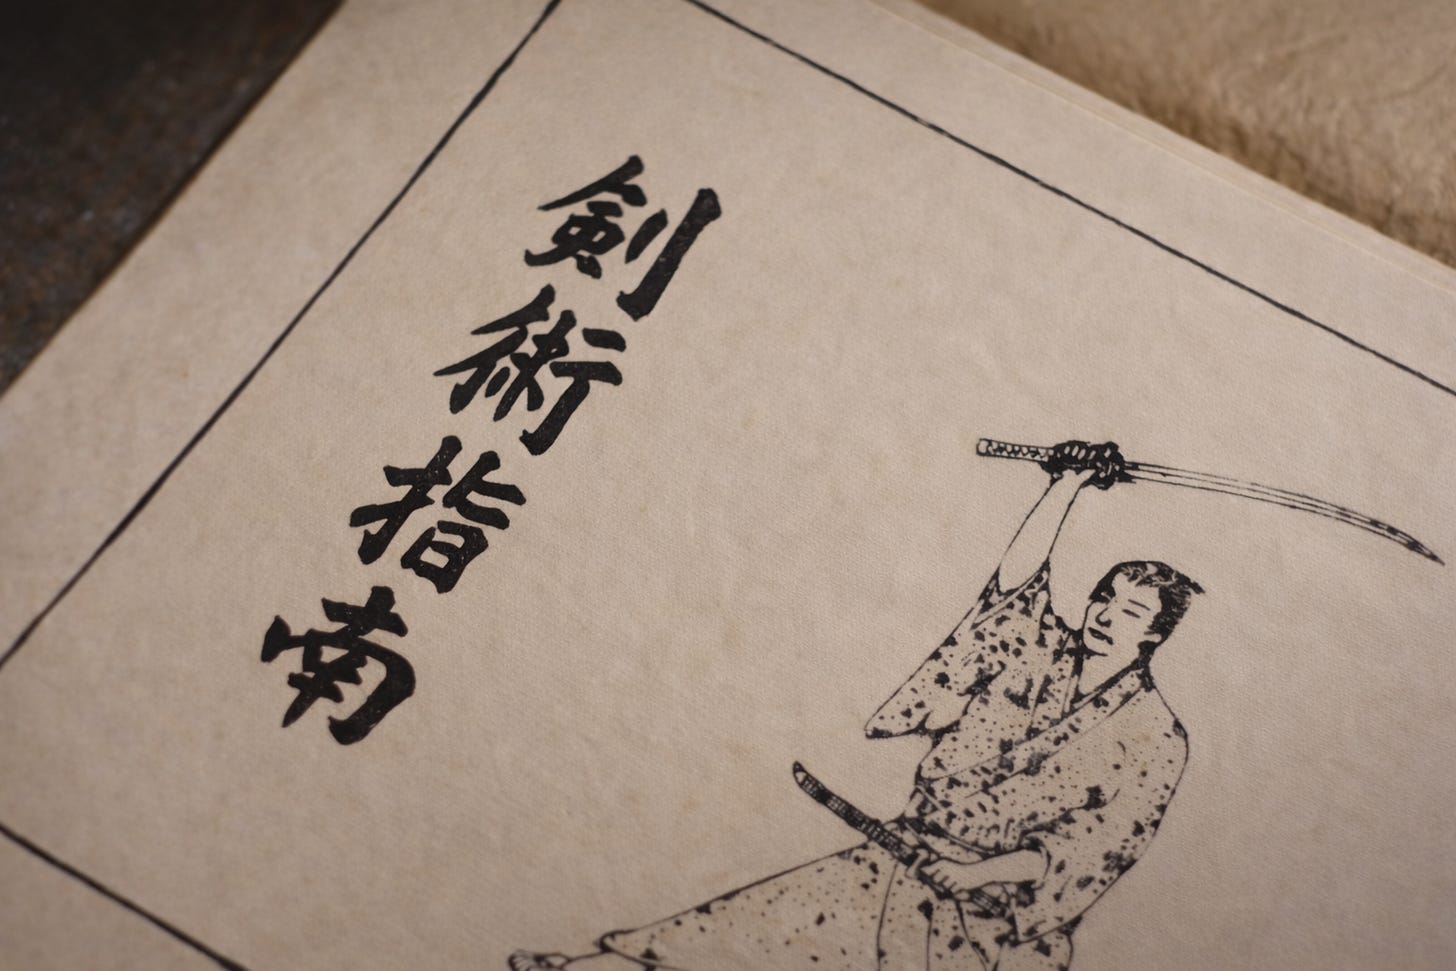 剣術指南